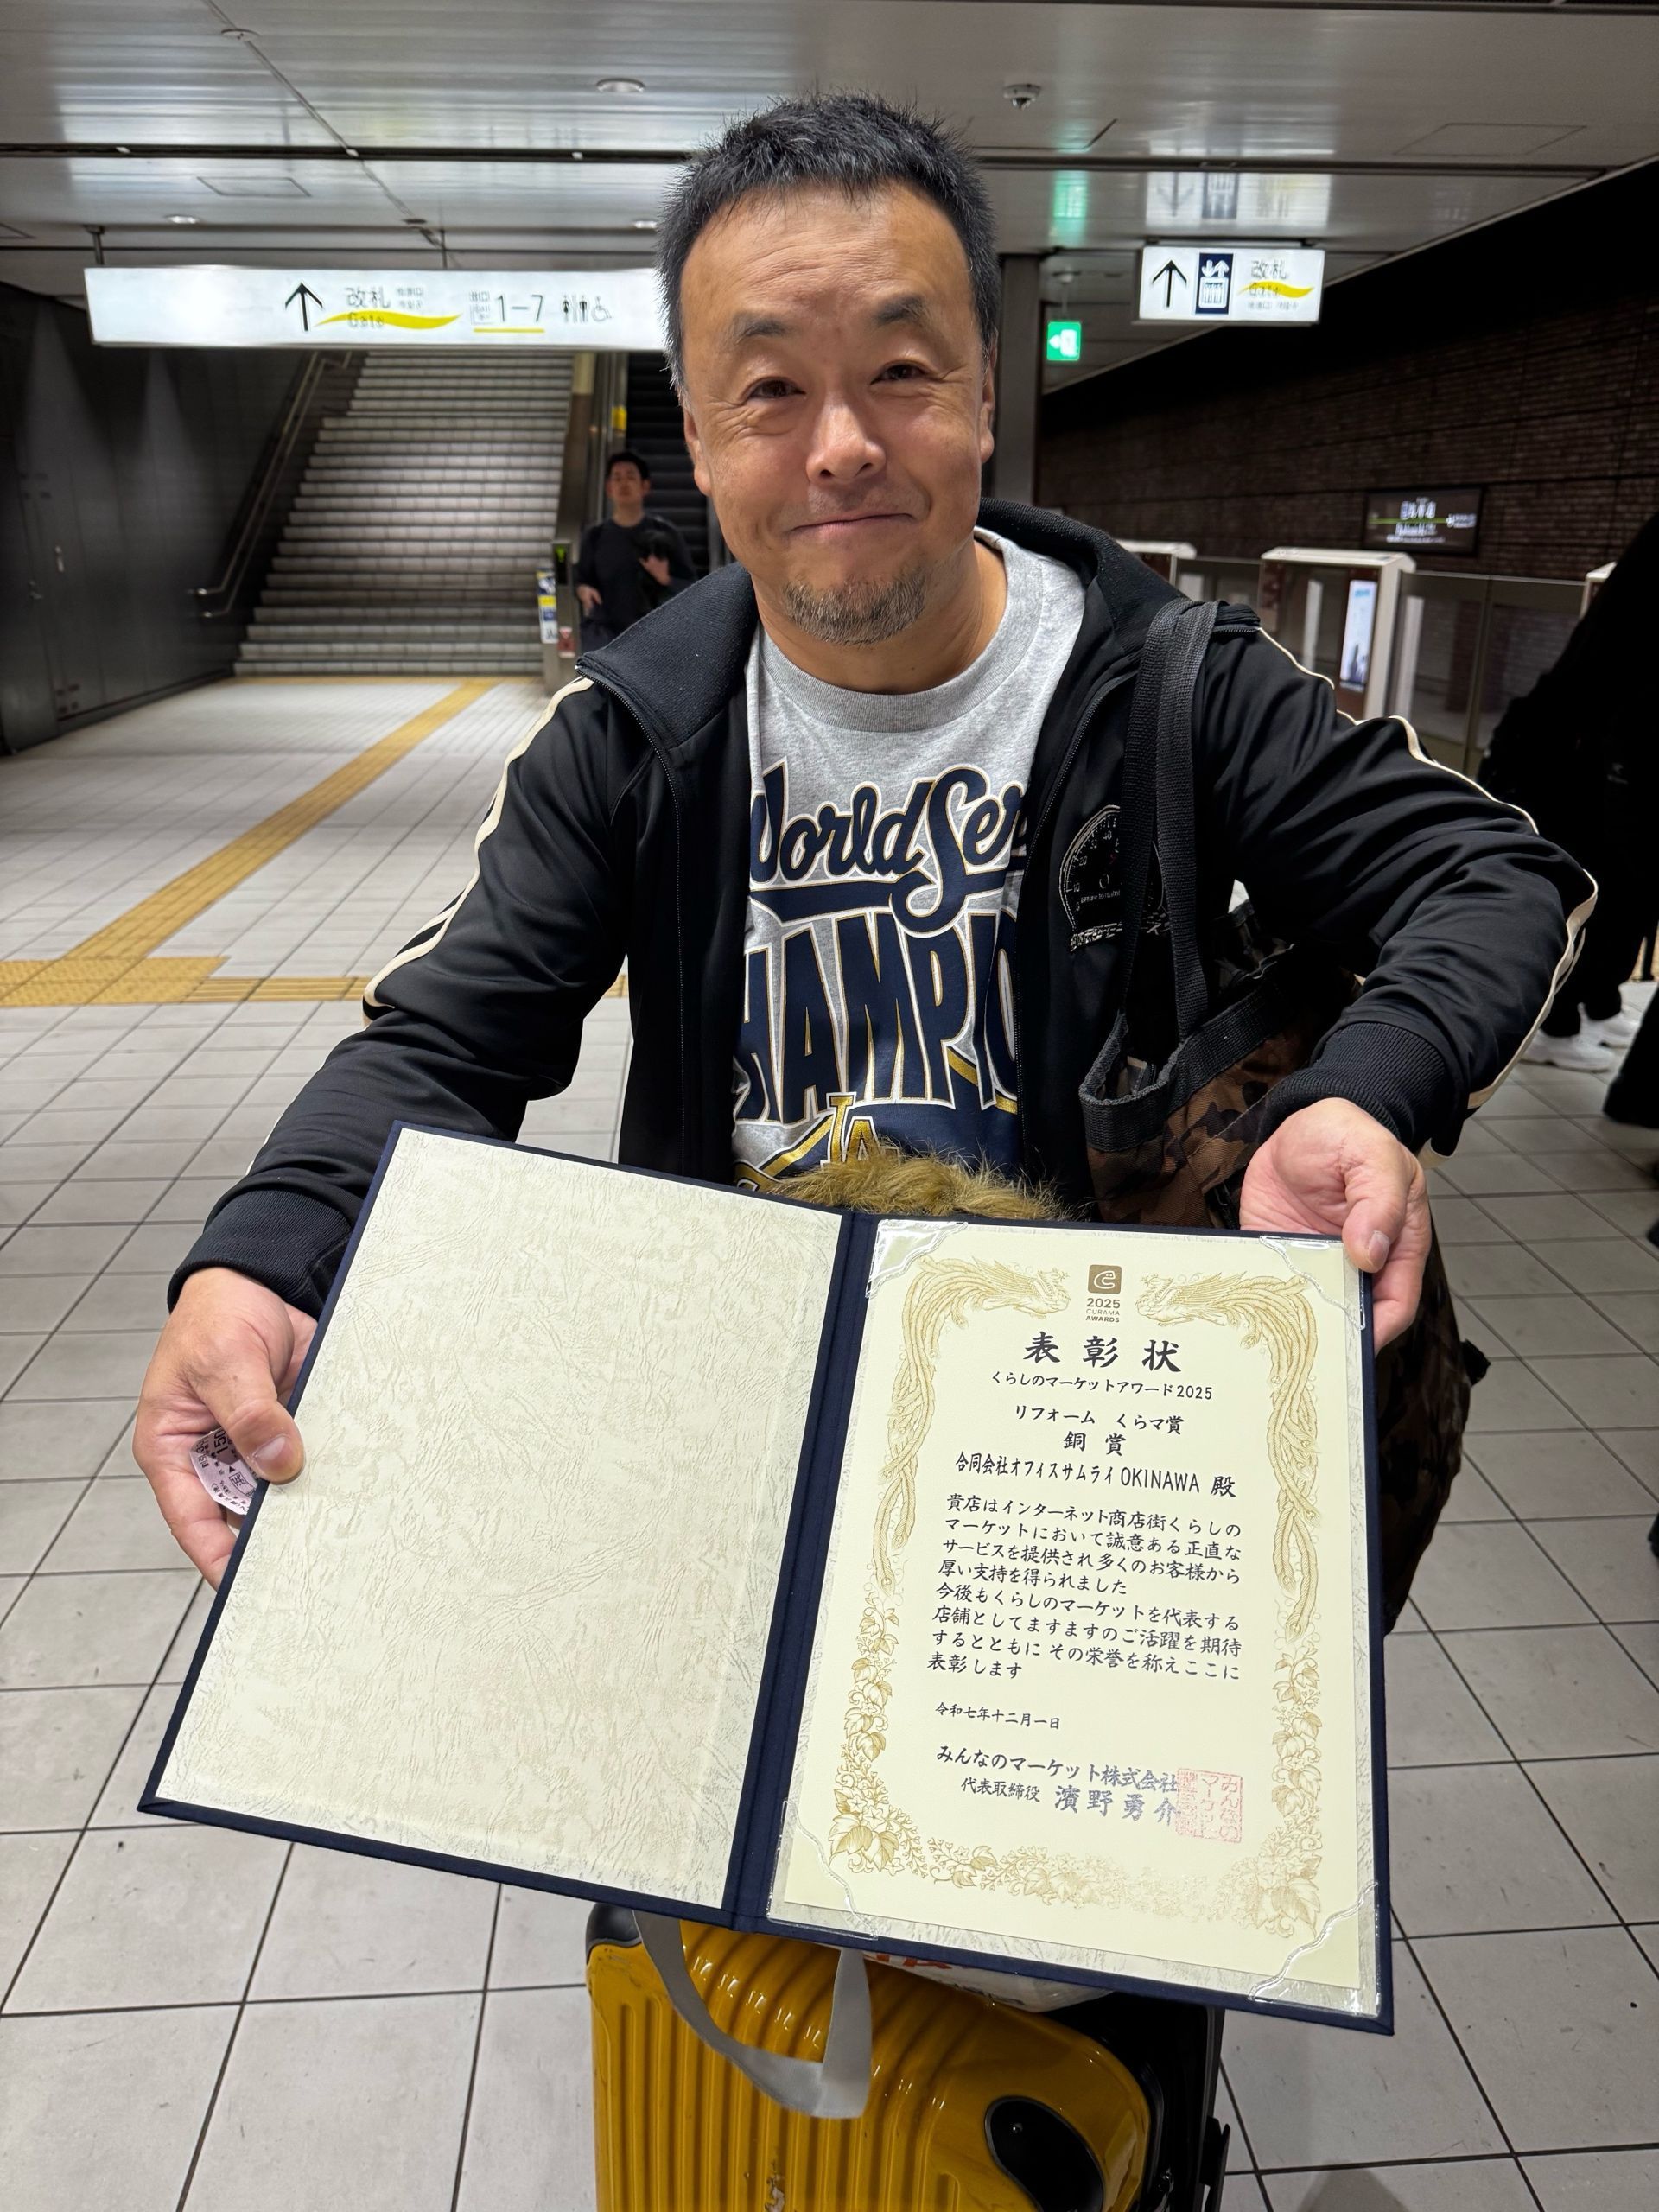 改札
Gate
1-7
改札
Gate
World Ser
HAMPIO
LA
2025
CURAMA
AWARDS
表彰状
くらしのマーケットアワード2025
リフォーム くらマ賞
銅賞
合同会社オフィスサムライOKINAWA 殿
貴店はインターネット商店街くらしの
マーケットにおいて誠意ある正直な
サービスを提供され多くのお客様から
厚い支持を得られました
今後もくらしのマーケットを代表する
店舗としてますますのご活躍を期待
するとともに その栄誉を称えここに
表彰します
令和七年十二月一日
みんなのマーケット株式会社
代表取締役 濱野勇介